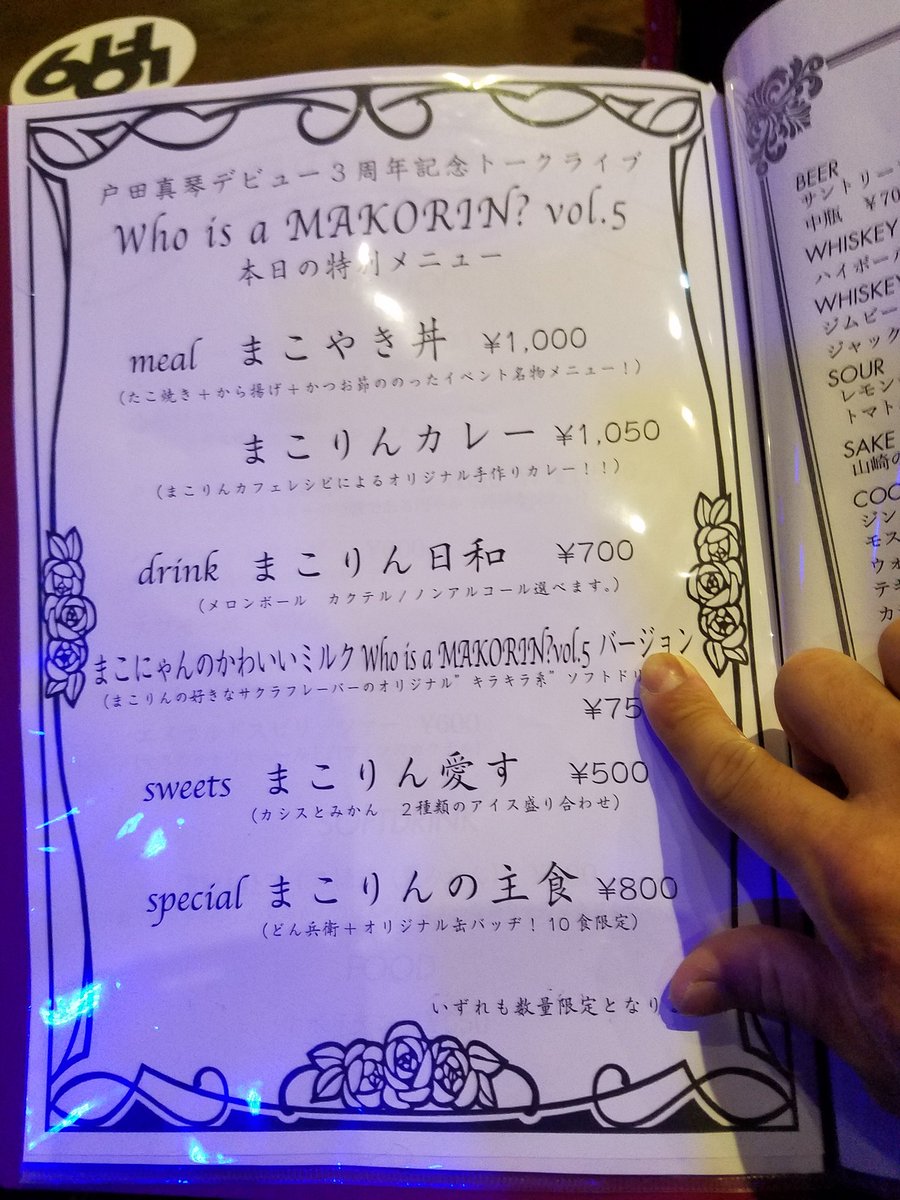 戸田真琴デビュー3周年記念トークライブ
Who is a MAKORIN? vol.5
本日の特別メニュー
meal まこやき丼 ¥1,000
(たこ焼き+から揚げ+かつお節ののったイベント名物メニュー!)
まこりんカレー ¥1,050
(まこりんカフェレシピによるオリジナル手作りカレー!!)
drink まこりん日和 ¥700
(メロンボール カクテル/ノンアルコール選べます。)
まこにゃんのかわいいミルク Who is a MAKORIN?vol.5 バージョン
(まこりんの好きなサクラフレーバーのオリジナル"キラキラ系"ソフトドリ
¥75
sweets まこりん愛す ¥500
(カシスとみかん 2種類のアイス盛り合わせ)
special まこりんの主食 ¥800
(どん兵衛+オリジナル缶バッヂ! 10食限定)
いずれも数量限定となり
BEER
サントリー
中瓶 ¥70
WHISKEY
ハイボール
WHISKEY
ジムビー
ジャック
SOUR
レモン
トマト
SAKE
山崎の
COC
ジン
モス
ウォ
テキ
カ